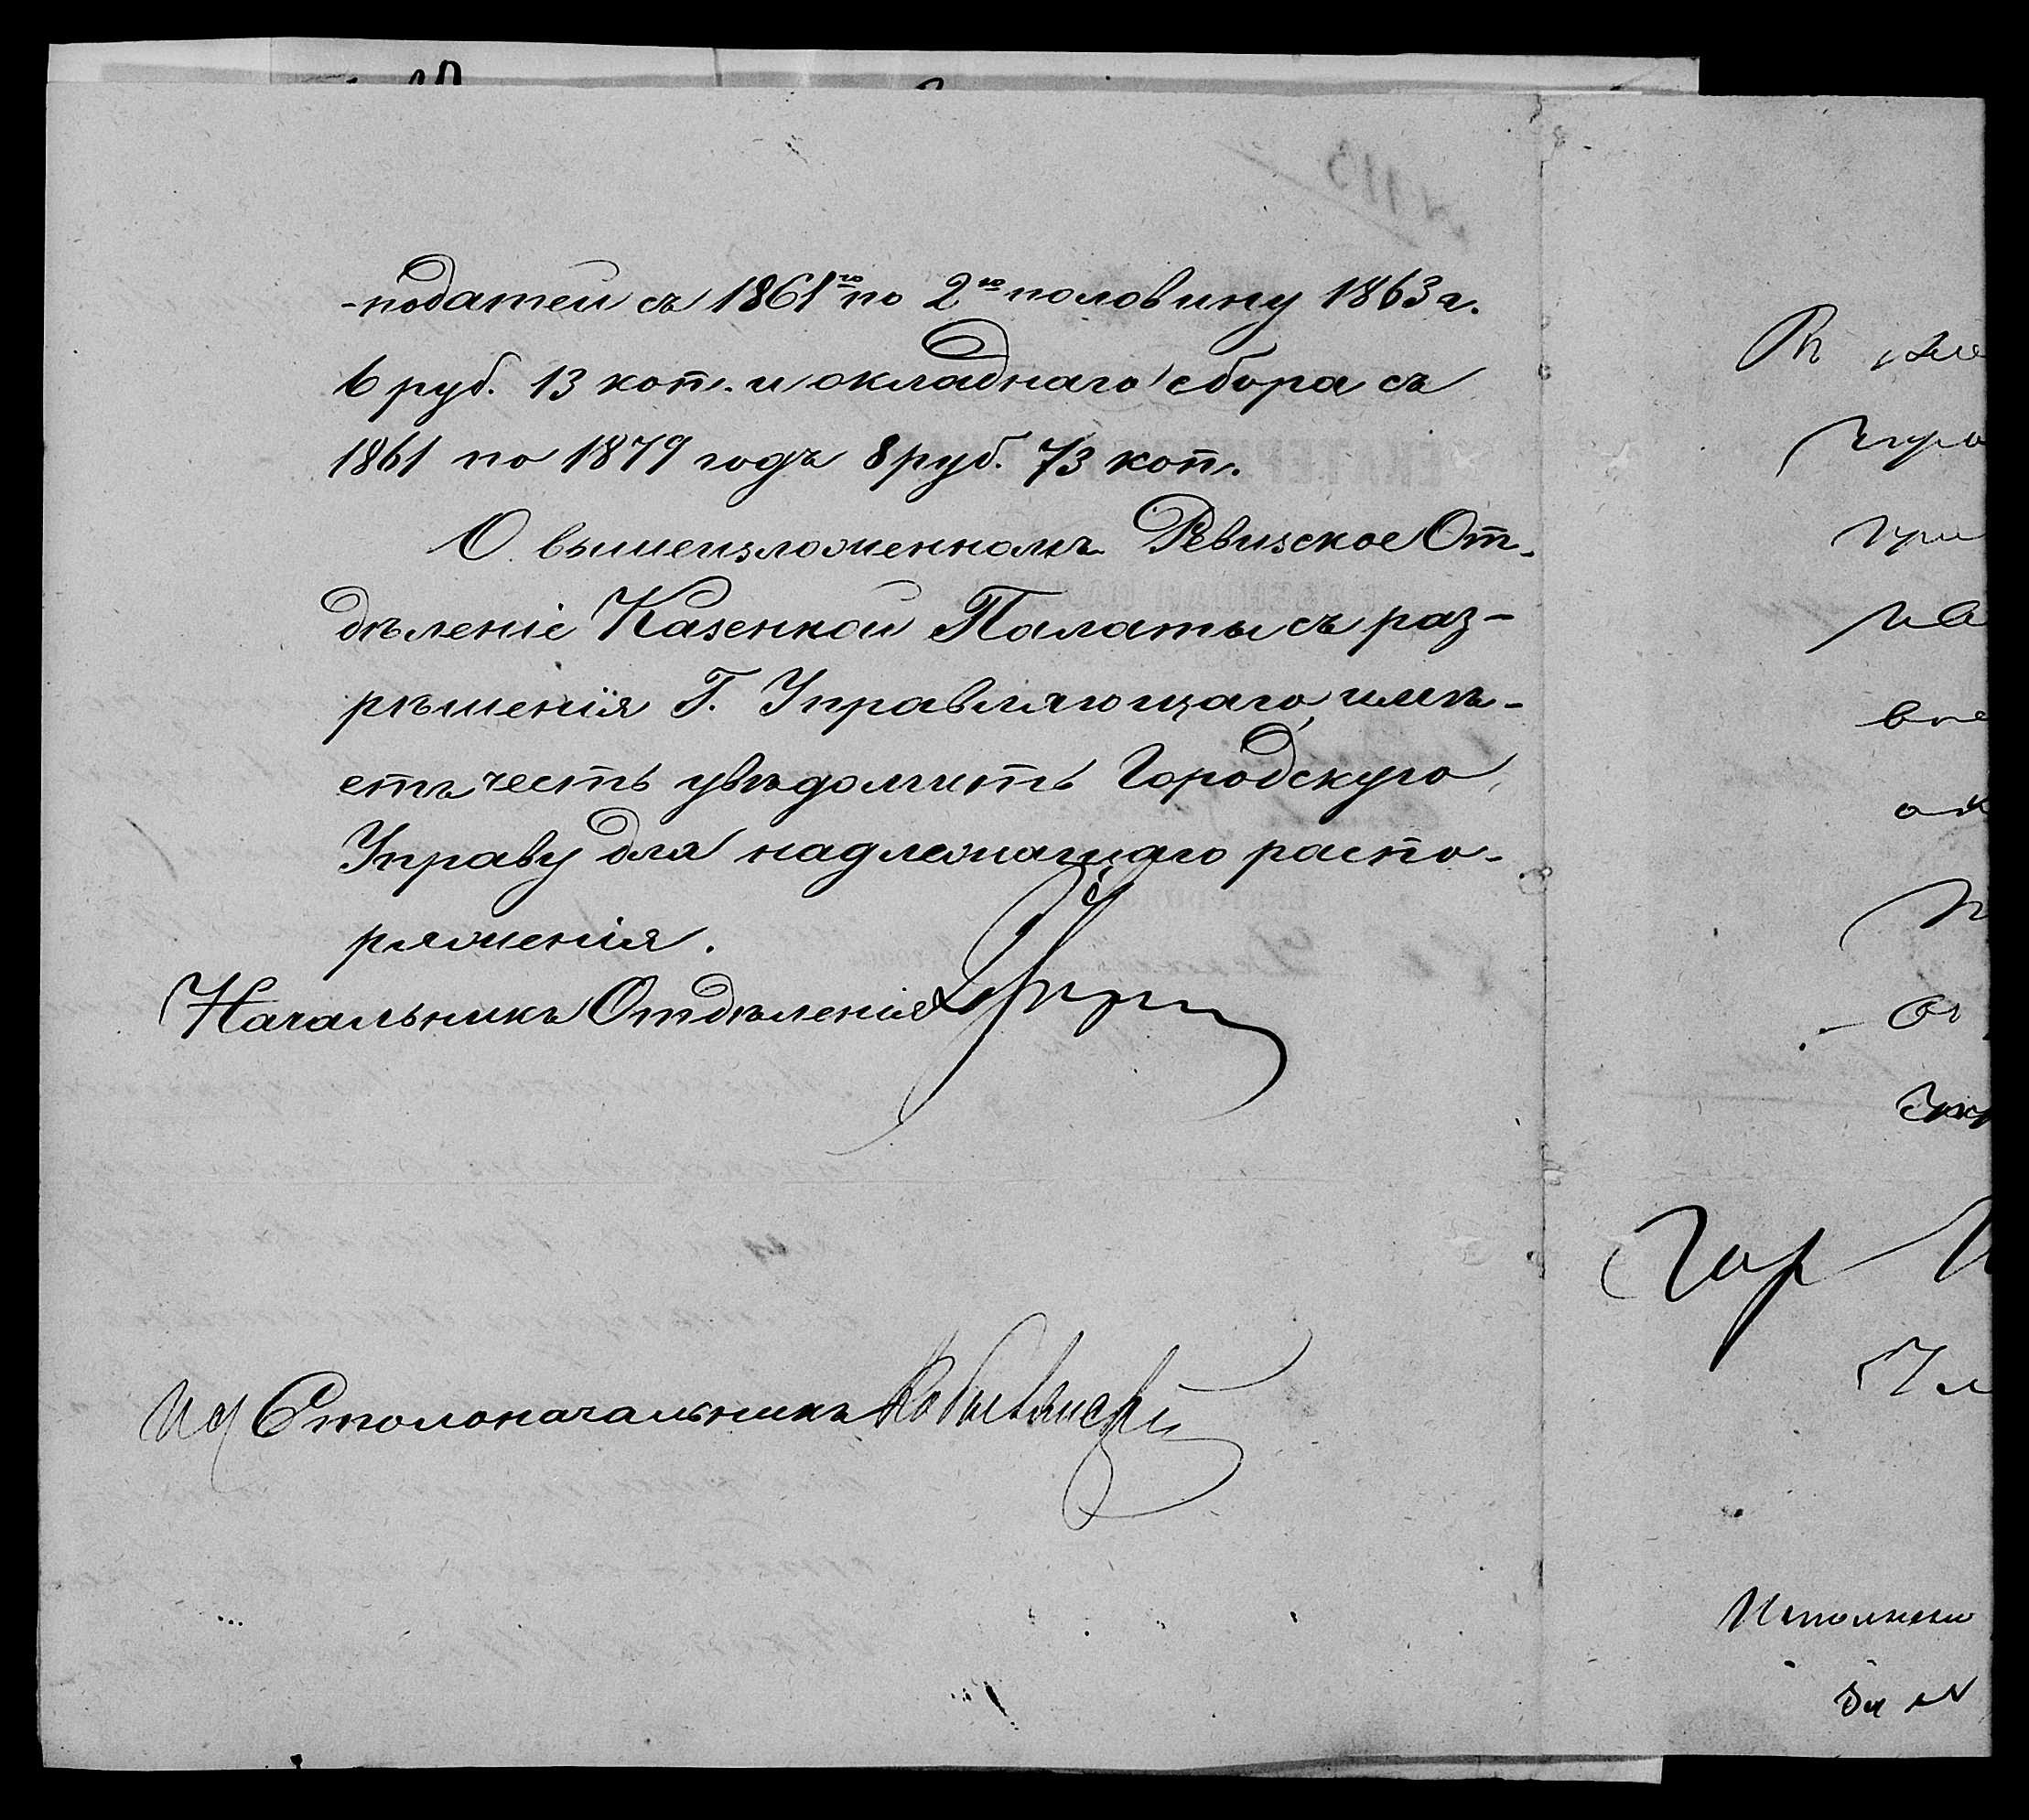 -податей съ 1861го по 2ю половину 1863 г.
6 руб. 13 коп. и окладнаго сбора съ
1861 по 1879 годъ 8 руб. 73 коп.
О вышеизложенномъ Ревизское От-
дѣленіе Казенной Палаты съ раз-
рѣшенія Г. Управляющаго, имѣ-
етъ честь увѣдомить Городскую
Управу для надлежащаго распо-
ряженія.
Начальникъ Отдѣленія
Ид Столоначальника
Гор
Исполнено